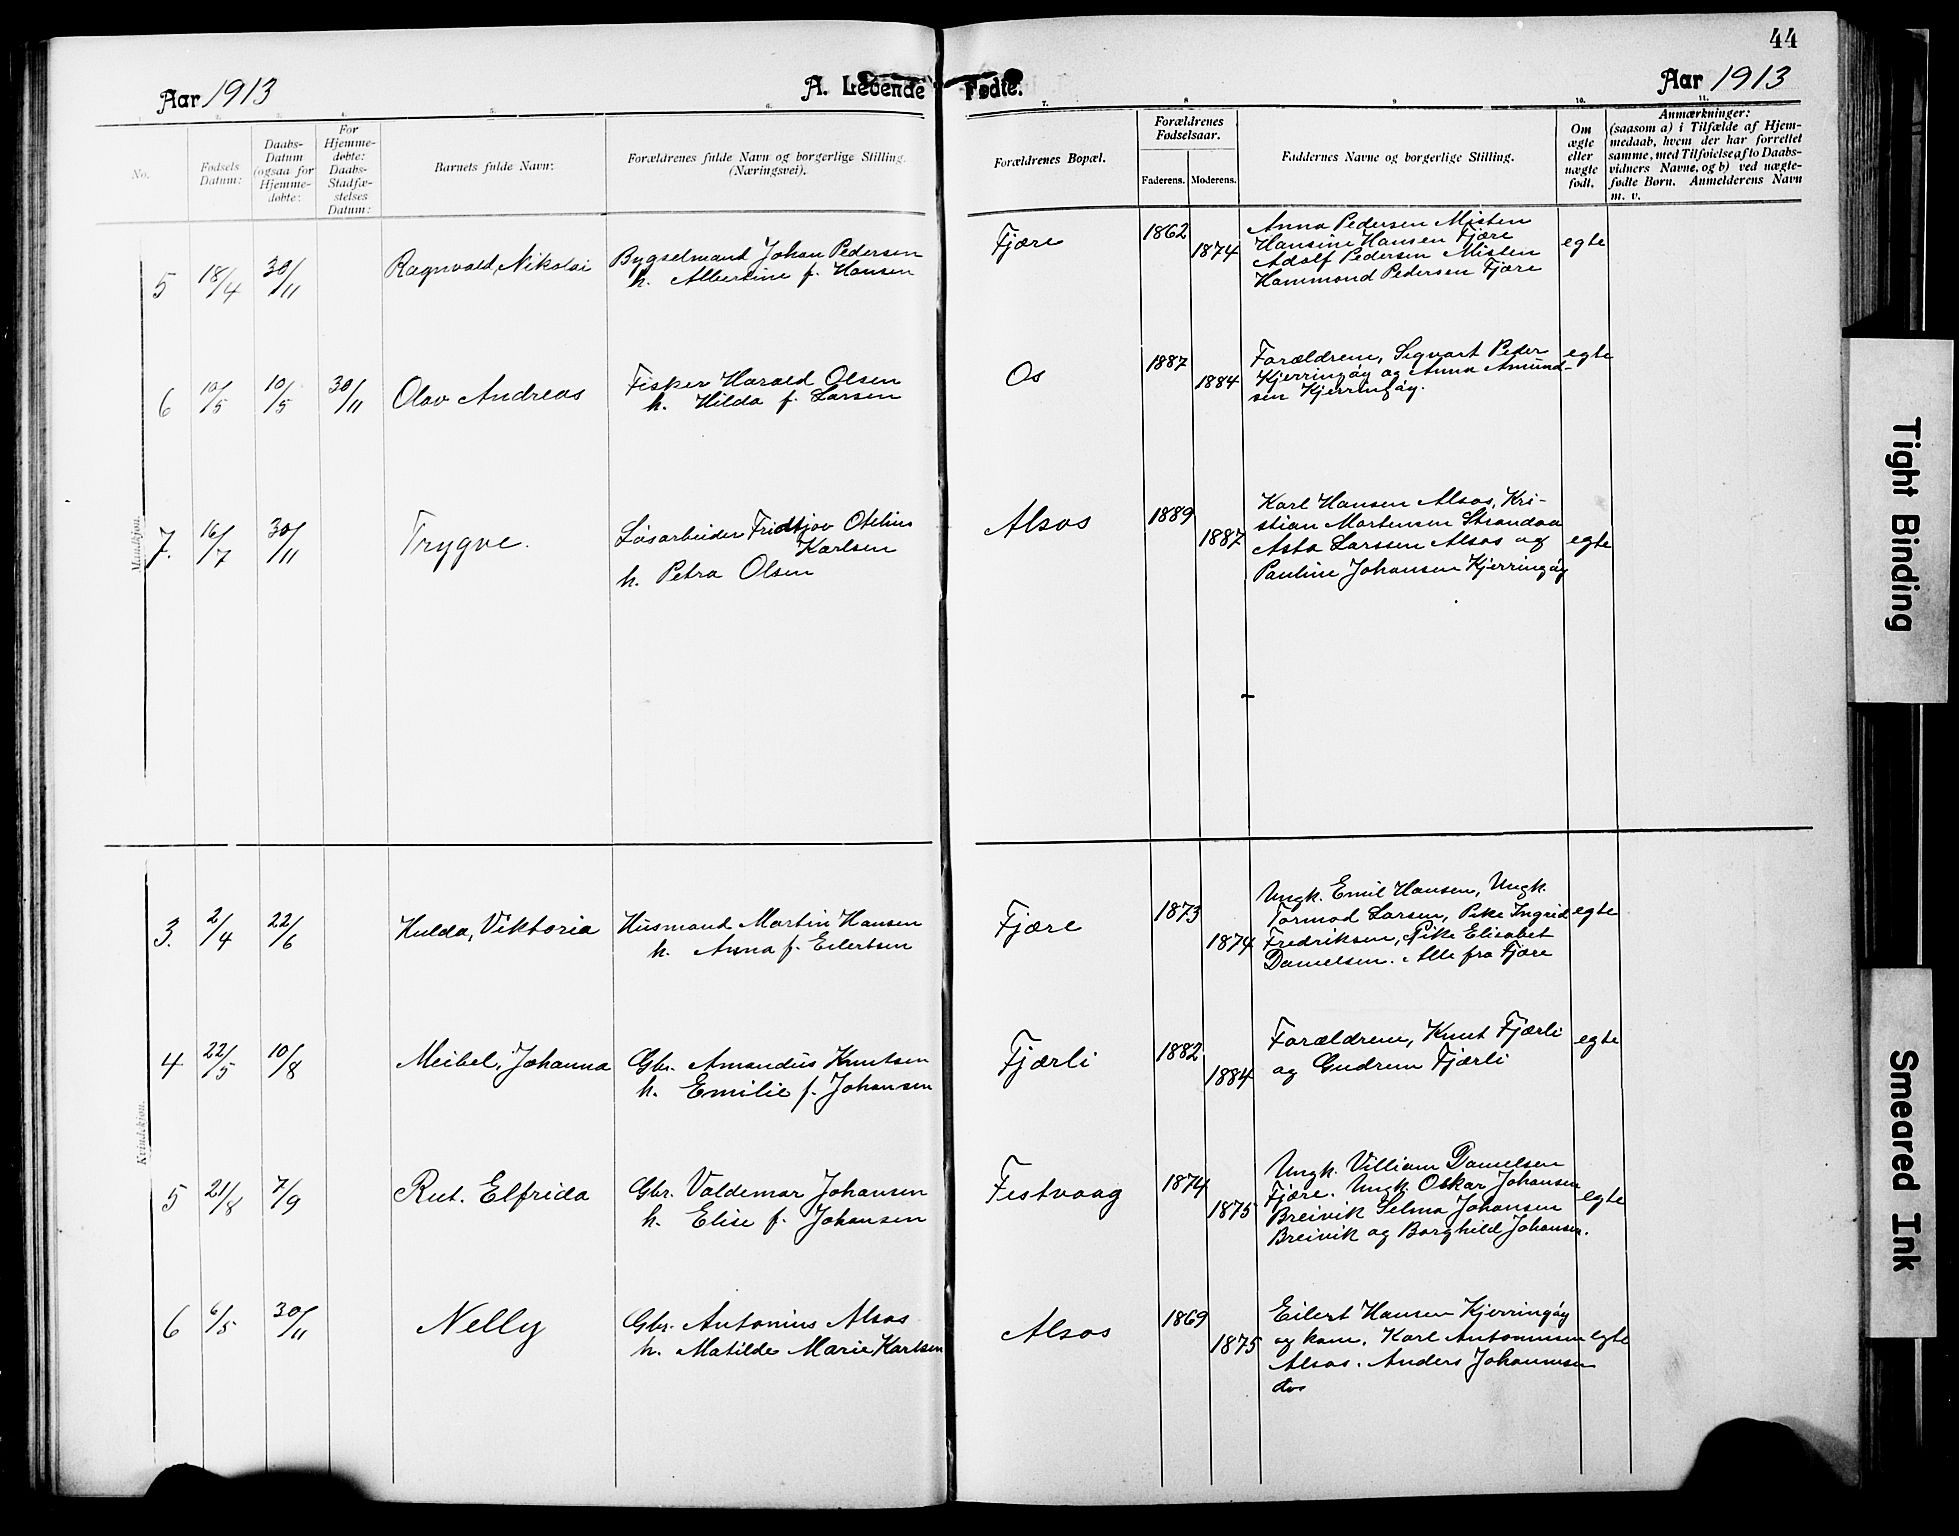 44
Aar 1913
A. Levende Fødte.
Aar 1913
No.
Fødsels Datum:
Daabs-Datum (ogsaa for Hjemme-døbte:
For Hjemme-døbte: Daabs-Stadfæ-stelses Datum:
Barnets fulde Navn:
Forældrenes fulde Navn og borgerlige Stilling. (Næringsvei).
7.
Forældrenes Bopæl.
8
Forældrenes Fødselsaar.
Faderens. Moderens.
9
Faddernes Navne og borgerlige Stilling.
10.
Om ægte eller uægte født.
11.
Anmærkninger:
(saasom a) i Tilfælde af Hjem-
medaab, hvem der har forrettet
samme, med Tilføielse af to Daabs-
vidners Navne, og b) ved uægte-
fødte Børn. Anmelderens Navn
m. v.
Mandkjøn.
5 18/4 30/11 Ragnvald, Nikolai
Bygselmand Johan Pedersen
h. Albertine f. Hansen
Fjære 1862 1874
Anna Pedersen Misten
Hansine Hansen Fjære
Adolf Pedersen Misten
Hammond Pedersen Fjære
egte
6 10/5 10/5 30/11 Olav Andreas
Fisker Harald Olsen
h. Hilda f. Larsen
Os 1887 1884
Forældrene, Sigvart Peder
Kjerringøy og Anna Amund-
sen Kjerringøy.
egte
7. 16/7 30/11 Trygve.
Løsarbeider Fridtjov Otelius
Karlsen
h. Petra Olsen
Alsos 1889 1887
Karl Hansen Alsos, Kri-
stian Mortensen Strandaa
Asta Larssen Alsos og
Pauline Johansen Kjerringøy
egte
Kvindekjøn.
3. 2/4 22/6 Hulda, Viktoria
Husmand Martin Hansen
h. Anna f. Eilertsen
Fjære 1873 1874
Ungk. Emil Hansen, Ungk.
Tormod Larsen, Pike Ingrid
Fredriksen, Pike Elisabet
Danielsen. Alle fra Fjære
egte
4 22/5 10/8 Meibel, Johanna
Gbr. Amandus Knutsen
h. Emilie f. Johansen
Fjærli 1882 1884
Forældrene, Knut Fjærli
og Gudrun Fjærli
egte
5 21/8 7/9 Rut. Elfrida
Gbr. Valdemar Johansen
h. Elise f. Johansen
Festvaag 1874 1875
Ungk. Villiam Danielsen
Fjære. Ungk. Oskar Johansen
Breivik Selma Johansen
Breivik og Borghild Johansen.
egte
6 6/5 30/11 Nelly
Gbr. Antonius Alsos
h. Matilde Marie Karlsen
Alsos 1869 1875
Eilert Hansen Kjerringøy
og kone, Karl Antonussen
Alsos. Anders Johannesen
egte
Tight Binding
Smeared Ink